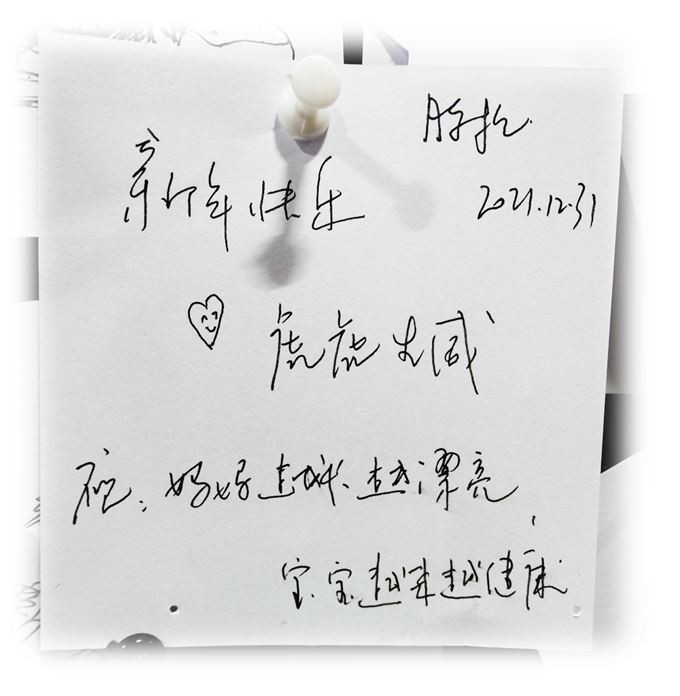 2021.12.31
新年快乐
虎虎生威
祝：妈妈越来越漂亮，
宝宝越来越健康